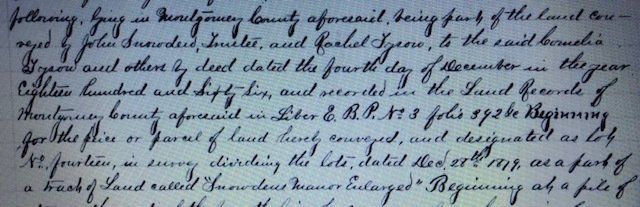 following, lying in Montgomery County aforesaid, being part of the land con-
veyed by John Snowden, Trustee, and Rachel Tyson, to the said Cornelia
Tyson and others by deed dated the fourth day of December in the year
Eighteen hundred and Sixty Six, and recorded in the Land Records of
Montgomery County aforesaid in Liber E. B. P. No 3 folio 392 &c Beginning
for the piece or parcel of land hereby conveyed, and designated as lot
No. fourteen, in survey dividing the lots, dated Dec. 28th 1879, as a part of
a tract of Land called "Snowdens Manor Enlarged" Beginning at a pile of